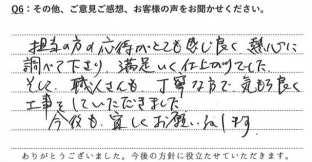 Q6:その他、ご意見ご感想、お客様の声をお聞かせください。
担当の方の応待がとても感じ良く 熱心に
調べて下さり 満足いく仕上りでした。
そして、職人さんも 丁寧な方で、気もち良く
工事をしていただきました
今後も、宜しくお願いします。
ありがとうございました。今後の方針に役立たせていただきます。